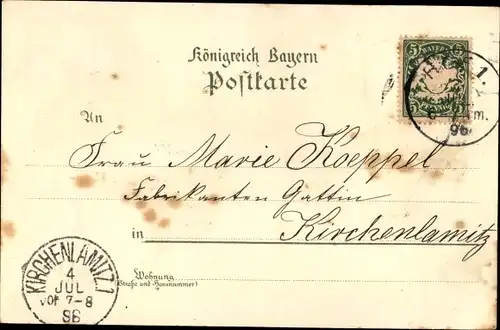 Königreich Bayern
Postkarte
5 BAYERN 5
5 PFENNIG 5
HOF 1.
96
An
Frau Marie Koeppel
Fabrikanten Gattin
in Kirchenlamitz
Wohnung
(Straße und Hausnummer)
KIRCHENLAMITZ 1
4
JUL
vor 7-8
98